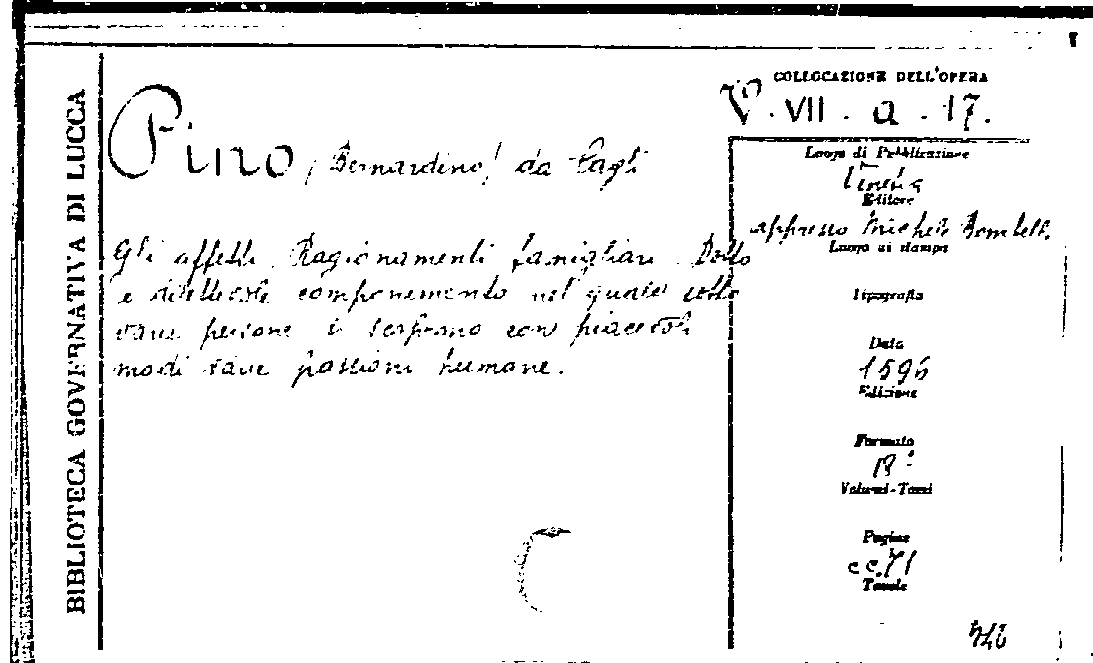 BIBLIOTECA GOVERNATIVA DI LUCCA
COLLOCAZIONE DELL'OPERA
V. VII. a. 17.
Pino (Bernardino) da Cagli
Gli affetti. Ragionamenti famigliari. Dotto
e dilettevole componemento nel quale sotto
varie persone si scoprono con piacevoli
modi varie passioni humane.
Luogo di Pubblicazione
Venetia
Editore
appresso Michele Bombelli
Luogo di stampa
Tipografia
Data
1596
Edizione
Formato
Volumi-Tomi
Pagine
cc. 71
Tavole